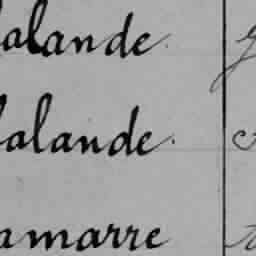 alande
alande.
amarre